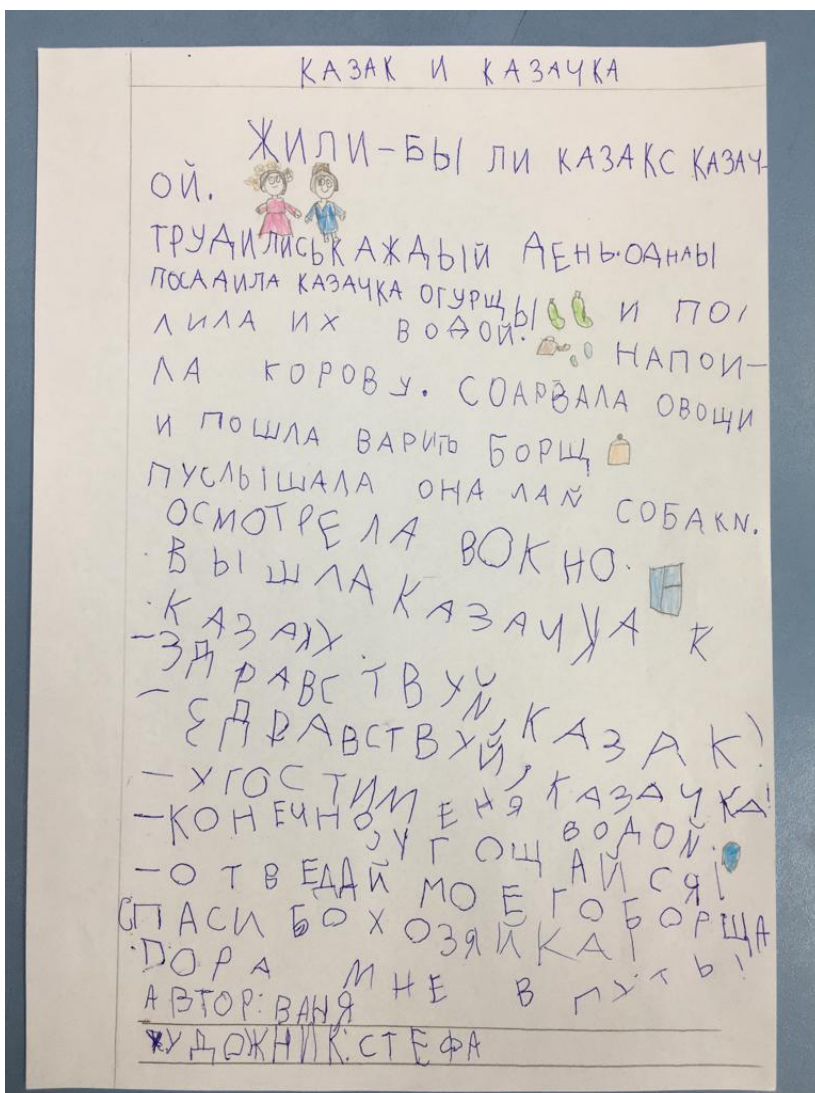 КАЗАК И КАЗАЧКА
ЖИЛИ-БЫ ЛИ КАЗАКС КАЗАЧ-
ОЙ.
ТРУДИЛИСЬКАЖДЫЙ ДЕНЬ.ОДНАЫ
ПОСАДИЛА КАЗАЧКА ОГУРЩЫ И ПО
ЛИЛА ИХ ВОДОЙ. НАПОИ-
ЛА КОРОВУ. СОАРВАЛА ОВОЩИ
И ПОШЛА ВАРИТЬ БОРЩ
ПУСЛЫШАЛА ОНА ЛАЙ СОБАКИ.
ОСМОТРЕЛА ВОКНО.
ВЫШЛА КАЗАЧКА К
КАЗАКУ.
-ЗДРАВСТВУЙ, КАЗАК!
- ЗДРАВСТВУЙ, КАЗАЧКА!
- УГОСТИМ ЕНЯ ВОДОЙ.
-КОНЕЧНО, УГОЩАЙСЯ!
-ОТВЕДАЙ МОЕГО БОРЩА
СПАСИБО ХОЗЯЙКА!
ПОРА МНЕ В ПУТЬ!
АВТОР: ВАНЯ
ХУДОЖНИК: СТЕФА